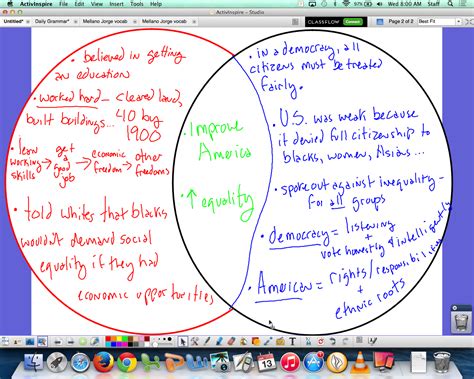 ActivInspire
ActivInspire - Studio
Wed 8:00 AM Staff
Untitled*
Daily Grammar*
Mellano Jorge vocab
Mellano Jorge vocab
CLASSFLOW
Page 2 of 2
Best Fit
• believed in getting
an education
• worked hard - cleared land,
built buildings... 40 buy
1900
• learn
working
skills → get
a
good
job → economic
freedom → other
freedoms
• told whites that blacks
wouldn't demand social
equality if they had
economic opportunities
• Improve
America
• ↑ equality
• in a democracy, all
citizens must be treated
fairly.
• U.S. was weak because
it denied full citizenship to
blacks, women, Asians...
• spoke out against inequality -
for all groups
• democracy = listening
+
vote honestly & intelligently
• American = rights/responsibilities
+
ethnic roots